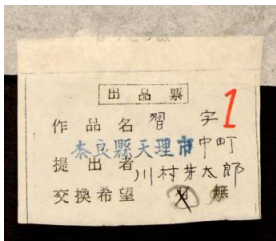 出品票
1
作品名 習字
奈良縣天理市中町
提出者 川村芳太郎
交換希望 有 無